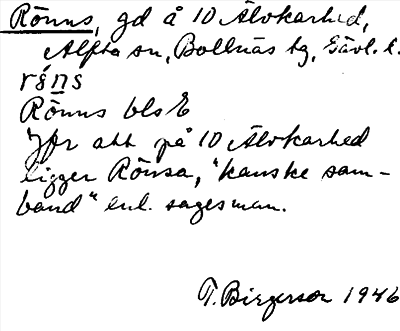 Rönns, gd å 10 Älvkarhed,
Alfta sn, Bollnäs tg, Gävl. l.
röns
Rönns bls E
Jfr att på 10 Älvkarhed
ligger Rönsa, "kanske sam-
band" enl. sagesman.
T. Birgerson 1946